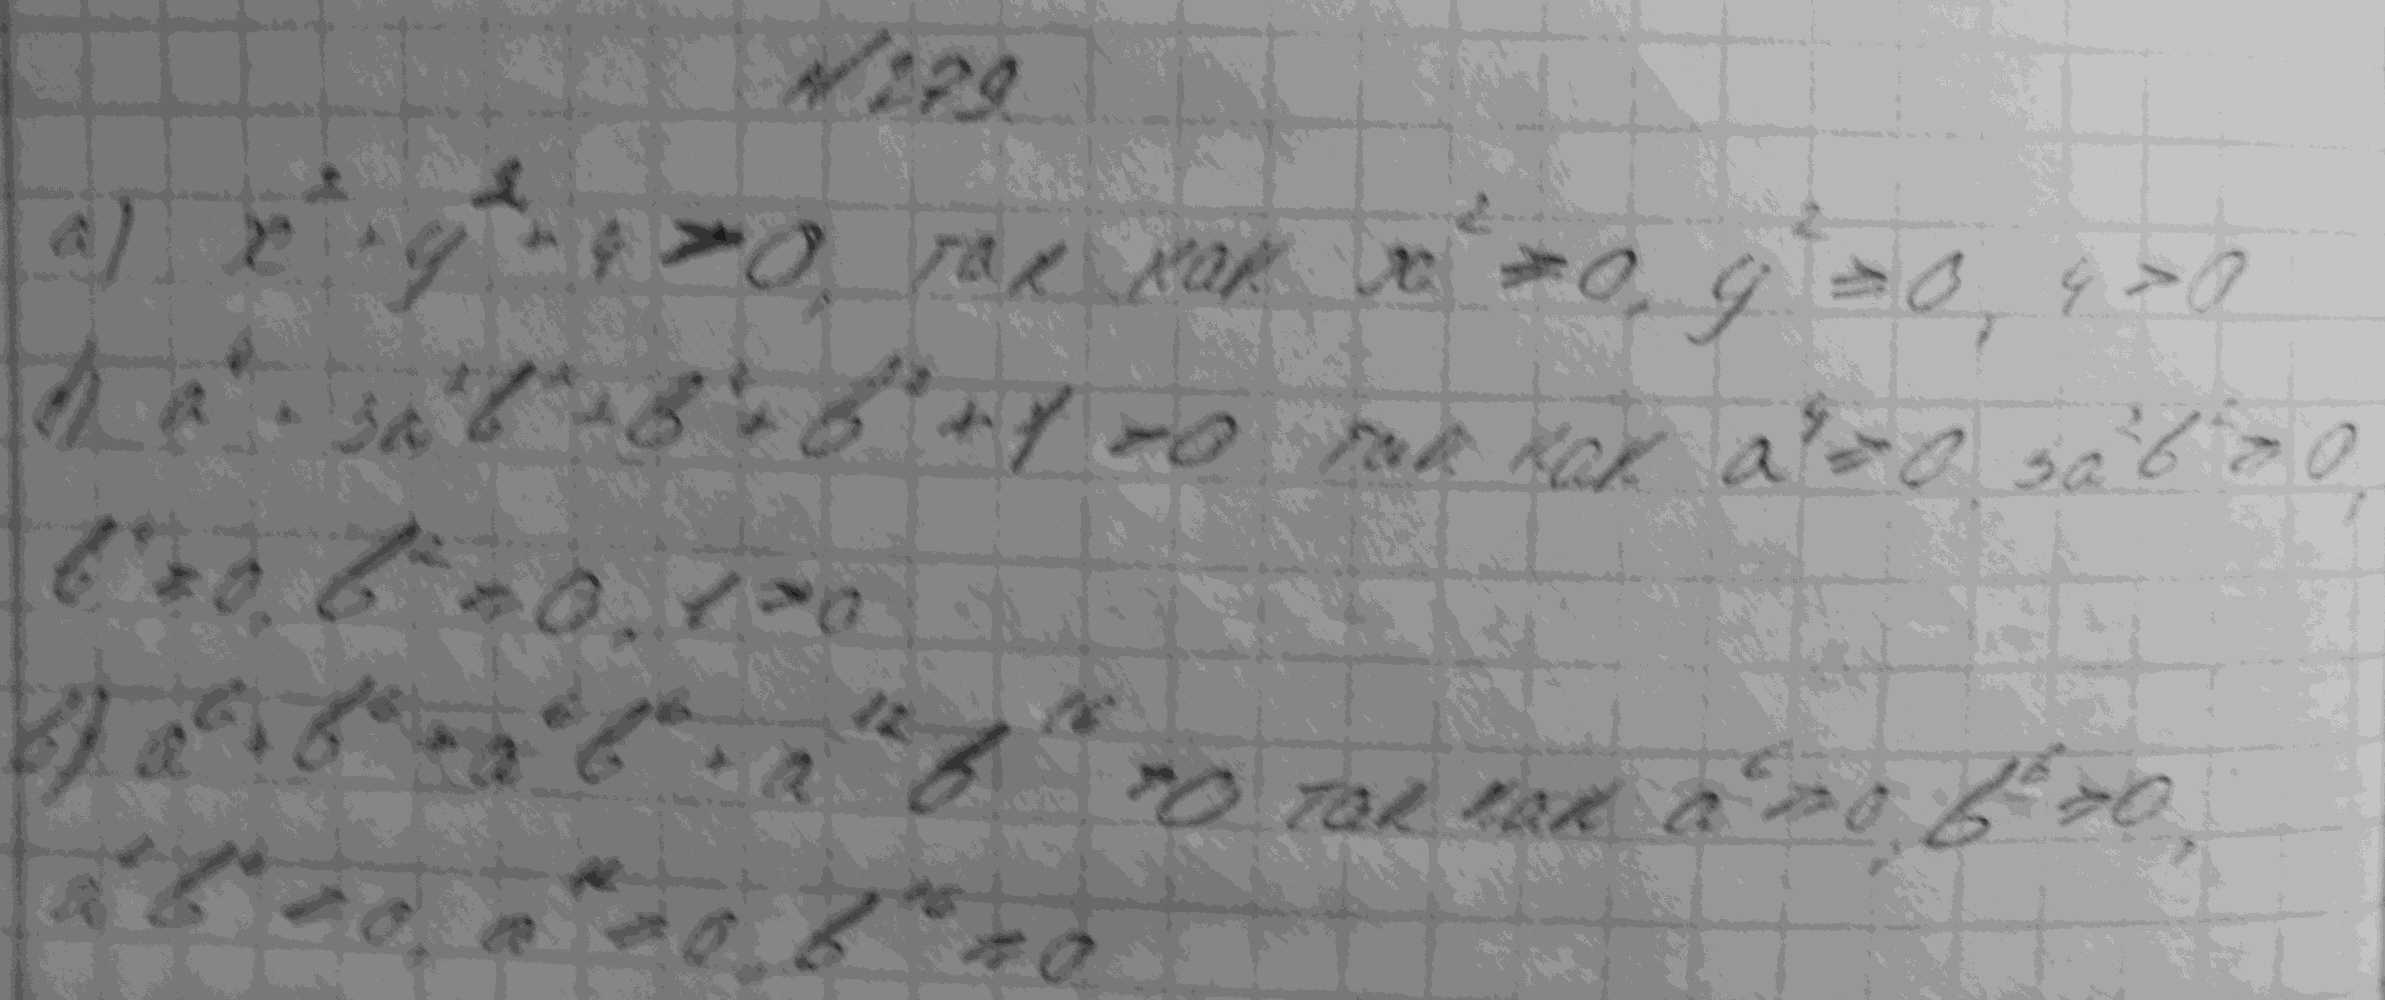 №279
а) x² + y² + 4 > 0, так как x² ≥ 0, y² ≥ 0, 4 > 0
б) a⁴ + 3a²b² + b⁴ + b² + 1 > 0 так как a⁴ ≥ 0, 3a²b² ≥ 0,
b⁴ ≥ 0, b² ≥ 0, 1 > 0
в) a⁶ + b⁶ + a⁶b⁶ + a¹²b¹⁶ ≥ 0 так как a⁶ ≥ 0, b⁶ ≥ 0,
a⁶b⁶ ≥ 0, a¹² ≥ 0, b¹⁶ ≥ 0